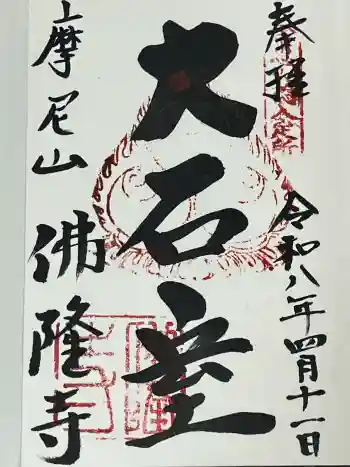 奉拝
令和八年四月十一日
大石室
摩尼山 佛隆寺